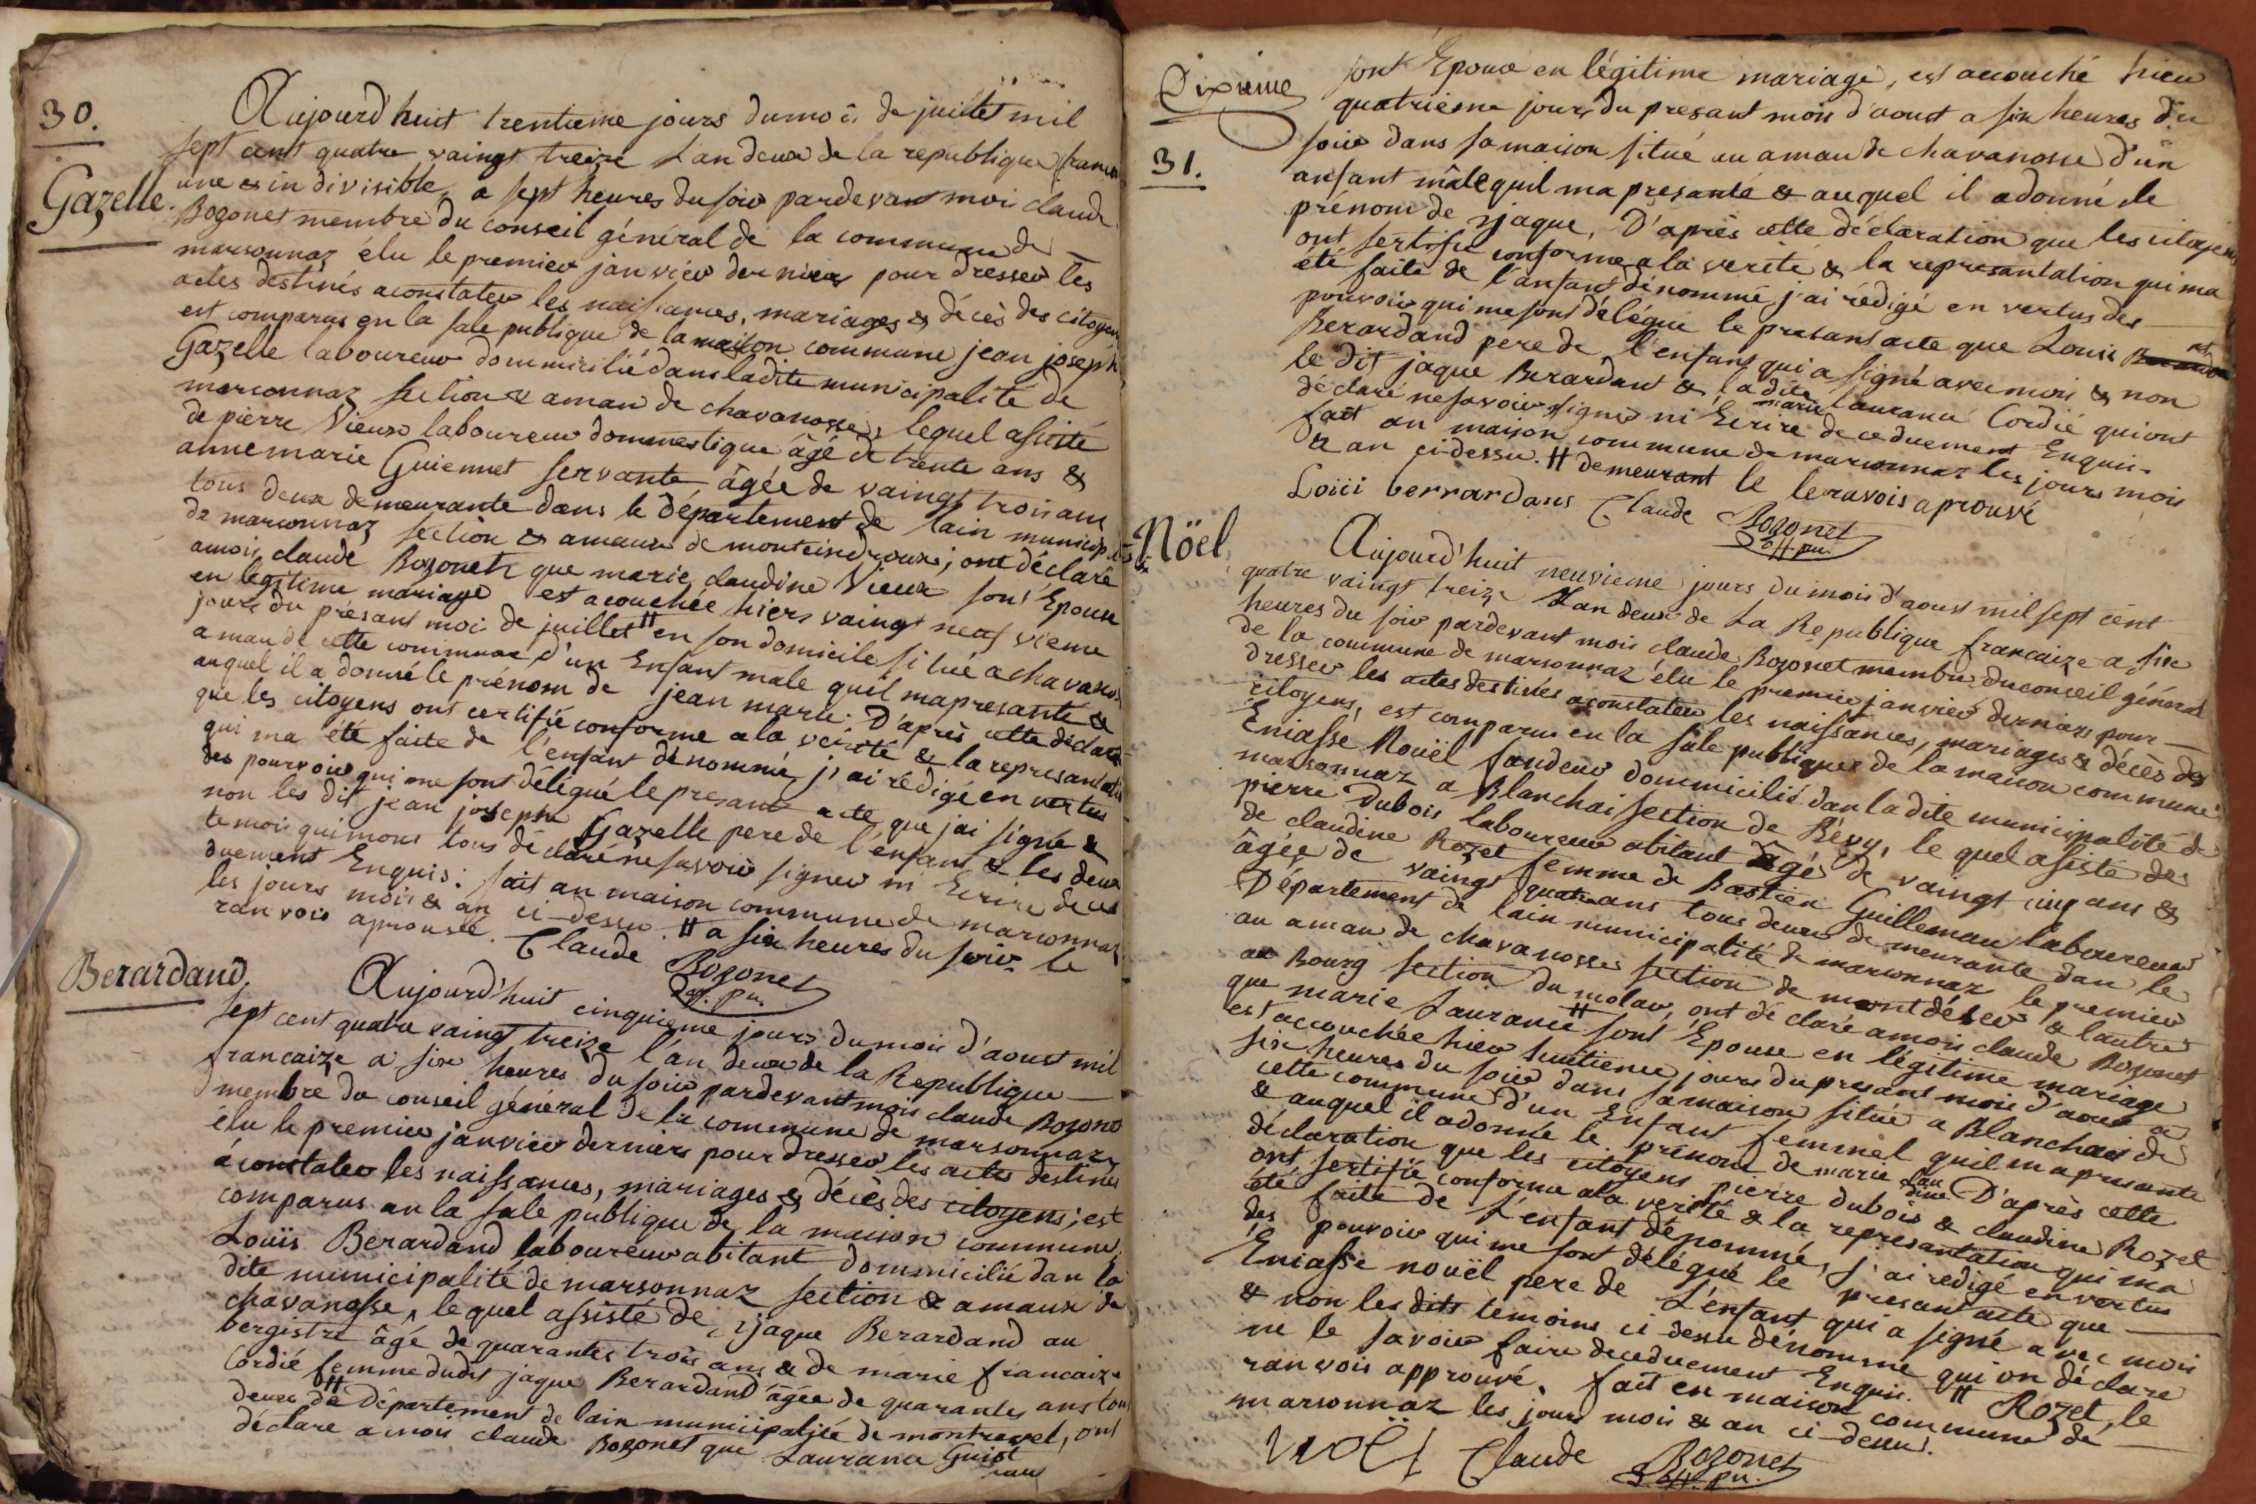 30.
Gazelle.
Aujourd'huit trentieme jours dumois de juillet mil
sept cent quatre vaingt treize L'an deux de la republique francai
une & in divisible, a sept heures du soir pardevant moi claude
Bozonet membre du conseil général de la commune de
marsonnaz élu le premier janvier dernier pour dresser les
actes destinés aconstater les naissances, mariages & décès des citoyens
est comparus en la sale publique de la maison commune jean joseph
Gazelle laboureur dommicilié dans ladite municipalité de
marsonnaz section & aman de chavanosse, lequel assisté
de pierre Vieux laboureur dommestique âgé de trente ans &
anne marie Guiennet servante âgée de vaingt trois ans
tous deux demeurante dans le Département de lain municip
de marsonnaz section & amaux de monteindroux; ont déclaré
amoi claude Bozonet que marie claudine Vieux sont Epouse
en légitime mariage est acouchée hiers vaingt neuf vieme
jours du présant mois de juillet # en son domicile situé a chavanos
aman de cette commune d'un Enfant male quil mapresanté &
auquel il a donné le prénom de jean marie. D'après cette déclara
que les citoyens ont certifié conforme ala vérité & la represantatio
qui ma été faite de l'enfant dénommé, j'ai rédigé en vertus
des pourvoir qui me sont délégué le presant acte que jai signé &
non les dit jean joseph Gazelle pere de l'enfant & les deux
temois quimons tous déclaré ne savoir signer ni Ecrire de ce
duement Enquis: fait an maison commune de marsonnaz
les jours mois & an ci-dessu. # a six heures du soir le
ranvois aprouvé. Claude Bozonet
off. pu.
Berardand.
Aujourd'huit cinquieme jours du mois d'aoust mil
sept cent quatre vaingt treize l'an deux de la Republique
francaize a six heures du soir pardevant mois claude Bozonet
membre du conseil général de la commune de marsonnaz
élu le premier janvier derniers pour dresser les actes destinés
á constater les naissances, mariages & décès des citoyens; est
comparus an la sale publique de la maison commune,
Louïs Berardand laboureur abitant dommicilié dan la
dite municipalité de marsonnaz section & amaux de
chavanosse, le quel assisté de jaque Berardand au
bergistre âgé de quarantes trois ans & de marie francaize
Cordié femme dudit jaque Berardand âgée de quarantes ans tous
deux # de Département de lain municipalité de montrevel, ont
déclare a mois claude Bozonet que Laurance Guiot
Dixieme
31.
sont Epouse en légitime mariage, est acouché hier
quatrieme jours du presant mois d'aoust a six heures du
soir dans sa maison situé au aman de chavanosse d'un
anfant mâle quil ma presanté & auquel il adonné le
prénom de jaque, D'après cette déclaration que les citoyens
ont sertifié conforme ala verité & la represantation qui ma
été faite de l'anfant dénommé, j'ai rédigé en vertus des
pouvoir qui me sont délégué le presant acte que Louis
Berardand pere de l'enfant qui a signé avec mois & non
le dit jaque Berardant & ladite marie laurance Cordié qui ont
déclaré ne savoir signer ni Ecrire de ce duement Enquis.
fait an maison commune de marsonnaz les jours mois
& an ci-dessu. # demeurant le leravois aprouvé
Loiii berrardans Claude Bozonet
off. pu.
Nöel
Aujourd'huit neuvieme jours du mois d'aoust mil sept cent
quatre vaingt treize L'an deux de La Republique francaize a six
heures du soir pardevant mois claude Bozonet membre du conseil général
de la commune de marsonnaz élu le premier janvier derniers pour
dresser les actes destinés aconstater les naissances, mariages & décès des
citoyens, est comparus en la sale publique de la maison commune
Eniasse Nouël fandeur dommicilié dan ladite municipalité de
marsonnaz a Blanchai section de Bévy, le quel assiste de
pierre Dubois laboureur abitant âgé de vaingt cinq ans &
de claudine Rozet femme de Bastien Guilleman laboureur
âgée de vaingt quatre ans tous deux demeurante dan le
Département de lain municipalité de marsonnaz le premier
au aman de chavanosse section de montdésert & lautre
au Bourg section du molard, ont déclaré amois claude Bozonet
que marie Laurance # sont Epouse en légitime mariage
est accouchée hier huitieme jours du presant mois d'aoust a
six heures du soir dans sa maison situé a Blanchai de
cette commune d'un Enfant femmel quil ma presanté
& auquel il adonné le prénom de marie claudine D'après cette
déclaration que les citoyens pierre dubois & claudine Rozet
ont sertifié conforme ala verité & la represantation qui ma
été faite de L'enfant dénommé, j'ai redigé en vertus
des pouvoir qui me sont délégué le presant acte que
Eniasse nouël pere de L'enfant qui a signé avec mois
& non les dits témoins ci-dessu dénommé qui on déclare
ne le savoir faire de ce duement Enquis. # Rozet, le
ranvois approuvé. fait en maison commune de
marsonnaz les jours mois & an ci-dessu.
NOËl Claude Bozonet
off. pu.